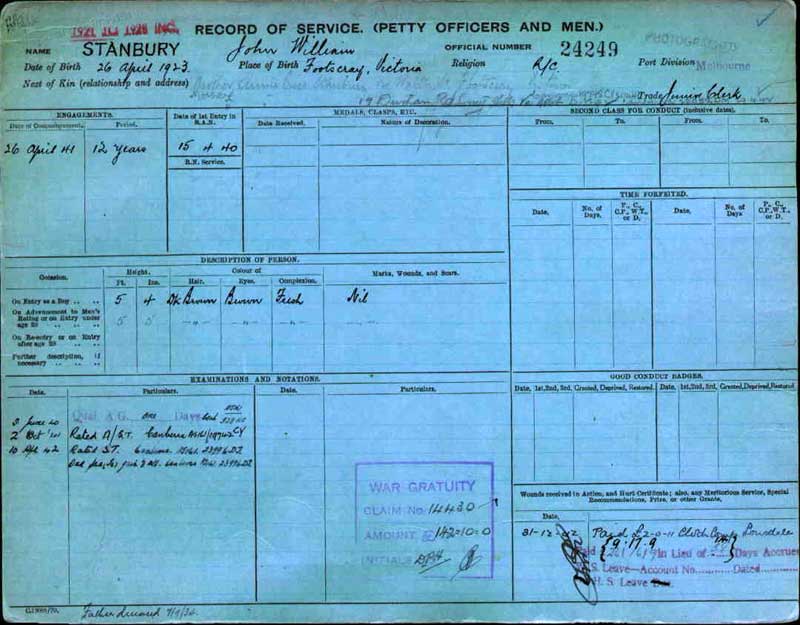 1921 TO 1928 INC.
RECORD OF SERVICE. (PETTY OFFICERS AND MEN.)
PHOTOGRAPHED
NAME STANBURY John William OFFICIAL NUMBER 24249
Date of Birth 26 April 1923 Place of Birth Footscray, Victoria Religion R/C Port Division Melbourne
Next of Kin (relationship and address) Mother
19 Trade Junior Clerk
ENGAGEMENTS.
Date of Commencement. Period.
26 April 41 12 years
Date of 1st Entry in R.A.N.
15 4 40
R.N. Service.
MEDALS, CLASPS, ETC.
Date Received. Nature of Decoration.
SECOND CLASS FOR CONDUCT (inclusive dates).
From. To. From. To.
TIME FORFEITED.
Date. No. of Days. P., C., C.P., W.T., or D. Date. No. of Days P., C., C.P., W.T., or D.
DESCRIPTION OF PERSON.
Occasion. Height. Colour of Marks, Wounds, and Scars.
Ft. Ins. Hair. Eyes. Complexion.
On Entry as a Boy .. .. 5 4 Dk Brown Brown Fresh Nil
On Advancement to Men's Rating or on Entry under age 28 .. .. .. 5 5 -"- -"- -"-
On Re-entry or on Entry after age 28 .. ..
Further description, if necessary .. ..
EXAMINATIONS AND NOTATIONS.
Date. Particulars. Date. Particulars.
3 June 40 Qual A.G. one Days
2 Oct '41 Rated A/S.T. Canberra
10 Apl 42 Rated S.T. Canberra 23996.D2
23996.D2
WAR GRATUITY
CLAIM No. 14430
AMOUNT @ 142-10-0
INITIALS
GOOD CONDUCT BADGES.
Date. 1st, 2nd, 3rd. Granted, Deprived, Restored. Date. 1st, 2nd, 3rd. Granted, Deprived, Restored
Wounds received in Action, and Hurt Certificate; also, any Meritorious Service, Special Recommendations, Prize, or other Grants.
Date.
31-12-42 Paid £2-0-11 Cloth Lonsdale
9.17.9
Paid in Lieu of Days Accrued
F.S. Leave—Account No. Dated
H. S. Leave
Father deceased